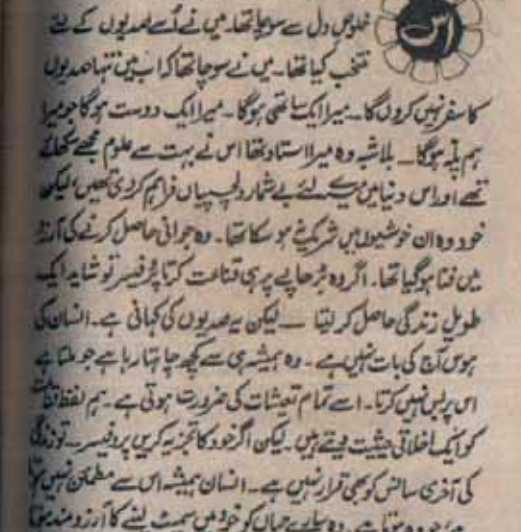 اس خلوص دل سے سوچا تھا۔ میں نے اُسے صدیوں کے لئے
منتخب کیا تھا۔ میں نے سوچا تھا کہ اب میں تنہا صدیوں
کا سفر نہیں کروں گا۔ میرا ایک ساتھی ہوگا۔ میرا ایک دوست ہوگا جو میرا
ہم پلّہ ہوگا۔ بلاشبہ وہ میرا استاد تھا اس نے بہت سے علوم مجھے سکھائے
تھے اور اس دنیا میں میرے لئے بے شمار دلچسپیاں فراہم کر دی تھیں، لیکن
خود وہ ان خوشیوں میں شریک نہ ہو سکا تھا۔ وہ جوانی حاصل کرنے کی آرزو
میں فنا ہوگیا تھا۔ اگر وہ بڑھاپے پر ہی قناعت کرتا پروفیسر تو شاید ایک
طویل زندگی حاصل کر لیتا — لیکن یہ صدیوں کی کہانی ہے۔ انسان کی
ہوس آج کی بات نہیں ہے۔ وہ ہمیشہ ہی سے کچھ چاہتا رہا ہے جو ملتا ہے
اس پر بس نہیں کرتا۔ اسے تمام تعیشات کی ضرورت ہوتی ہے۔ ہم لفظ قناعت
کو ایک اخلاقی حیثیت دیتے ہیں۔ لیکن اگر خود کا تجزیہ کریں پروفیسر۔ تو زندگی
کی آخری سانس کو بھی قرار نہیں ہے۔ انسان ہمیشہ اس سے مطمئن نہیں ہوتا
جو وہ ہوتا ہے۔ وہ سارے جہاں کو خود میں سمیٹ لینے کا آرزو مند ہوتا